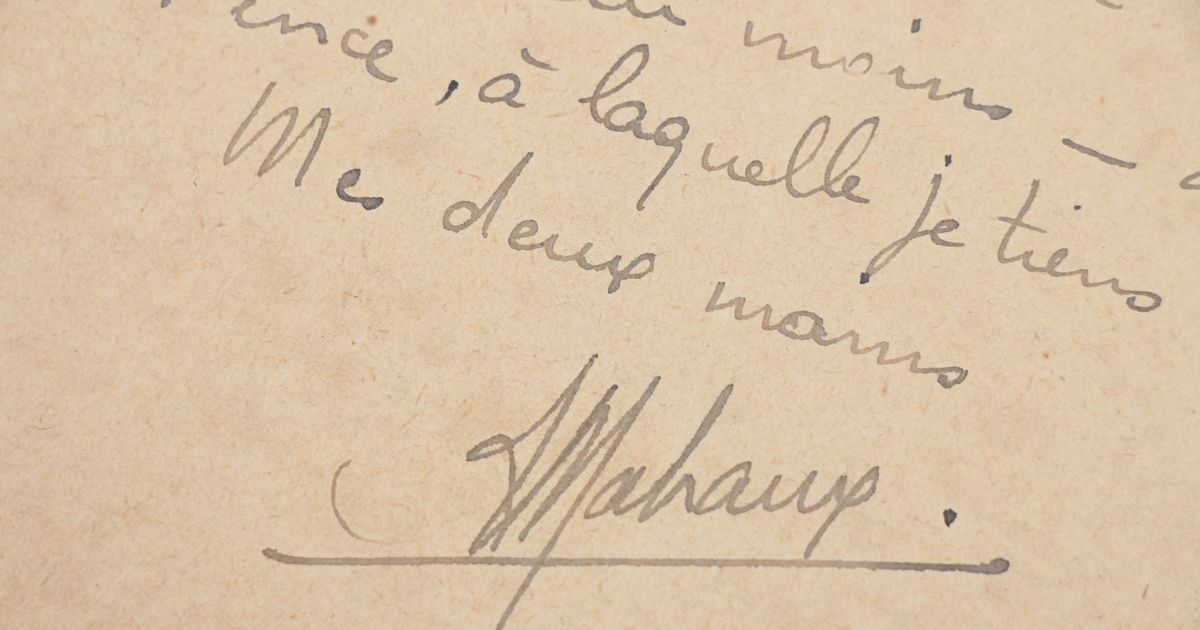 moins -
ence, à laquelle je tiens
Mes deux mains
Mahaux.